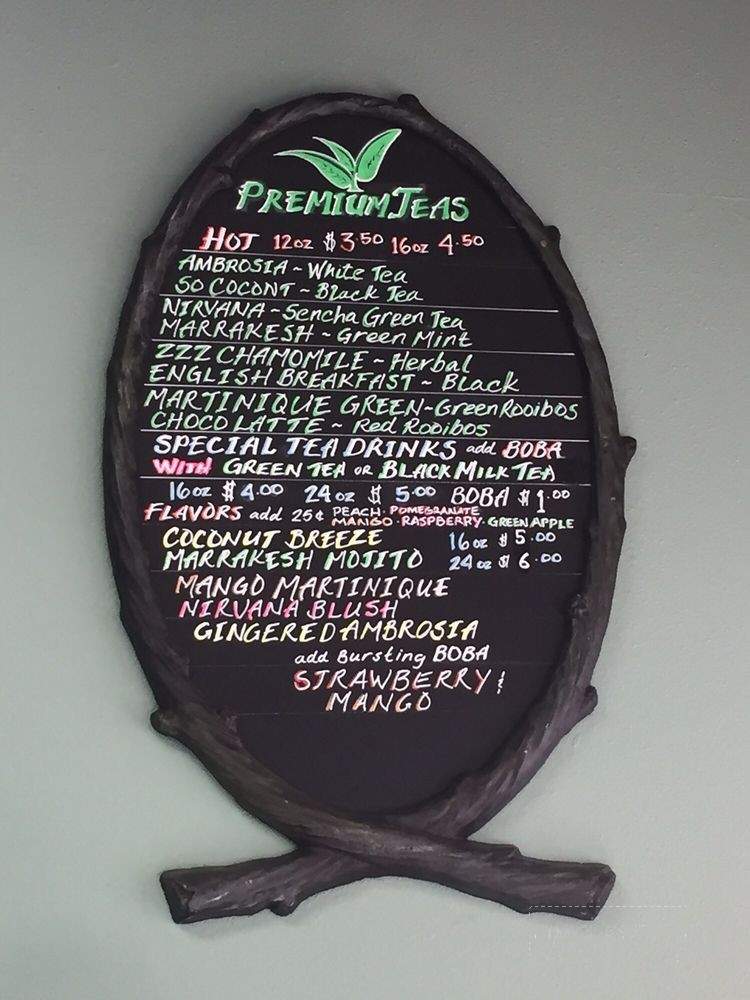 PREMIUM TEAS
HOT 12oz $3.50 16oz 4.50
AMBROSIA ~ White Tea
SO COCONT ~ Black Tea
NIRVANA ~ Sencha Green Tea
MARRAKESH ~ Green Mint
ZZZ CHAMOMILE ~ Herbal
ENGLISH BREAKFAST ~ Black
MARTINIQUE GREEN ~ Green Rooibos
CHOCO LATTE ~ Red Rooibos
SPECIAL TEA DRINKS add BOBA
WITH GREEN TEA OR BLACK MILK TEA
16oz $4.00 24oz $5.00 BOBA $1.00
FLAVORS add 25¢ PEACH · POMEGRANATE
MANGO · RASPBERRY · GREEN APPLE
COCONUT BREEZE 16oz $5.00
MARRAKESH MOJITO 24oz $6.00
MANGO MARTINIQUE
NIRVANA BLUSH
GINGERED AMBROSIA
add Bursting BOBA
STRAWBERRY
MANGO